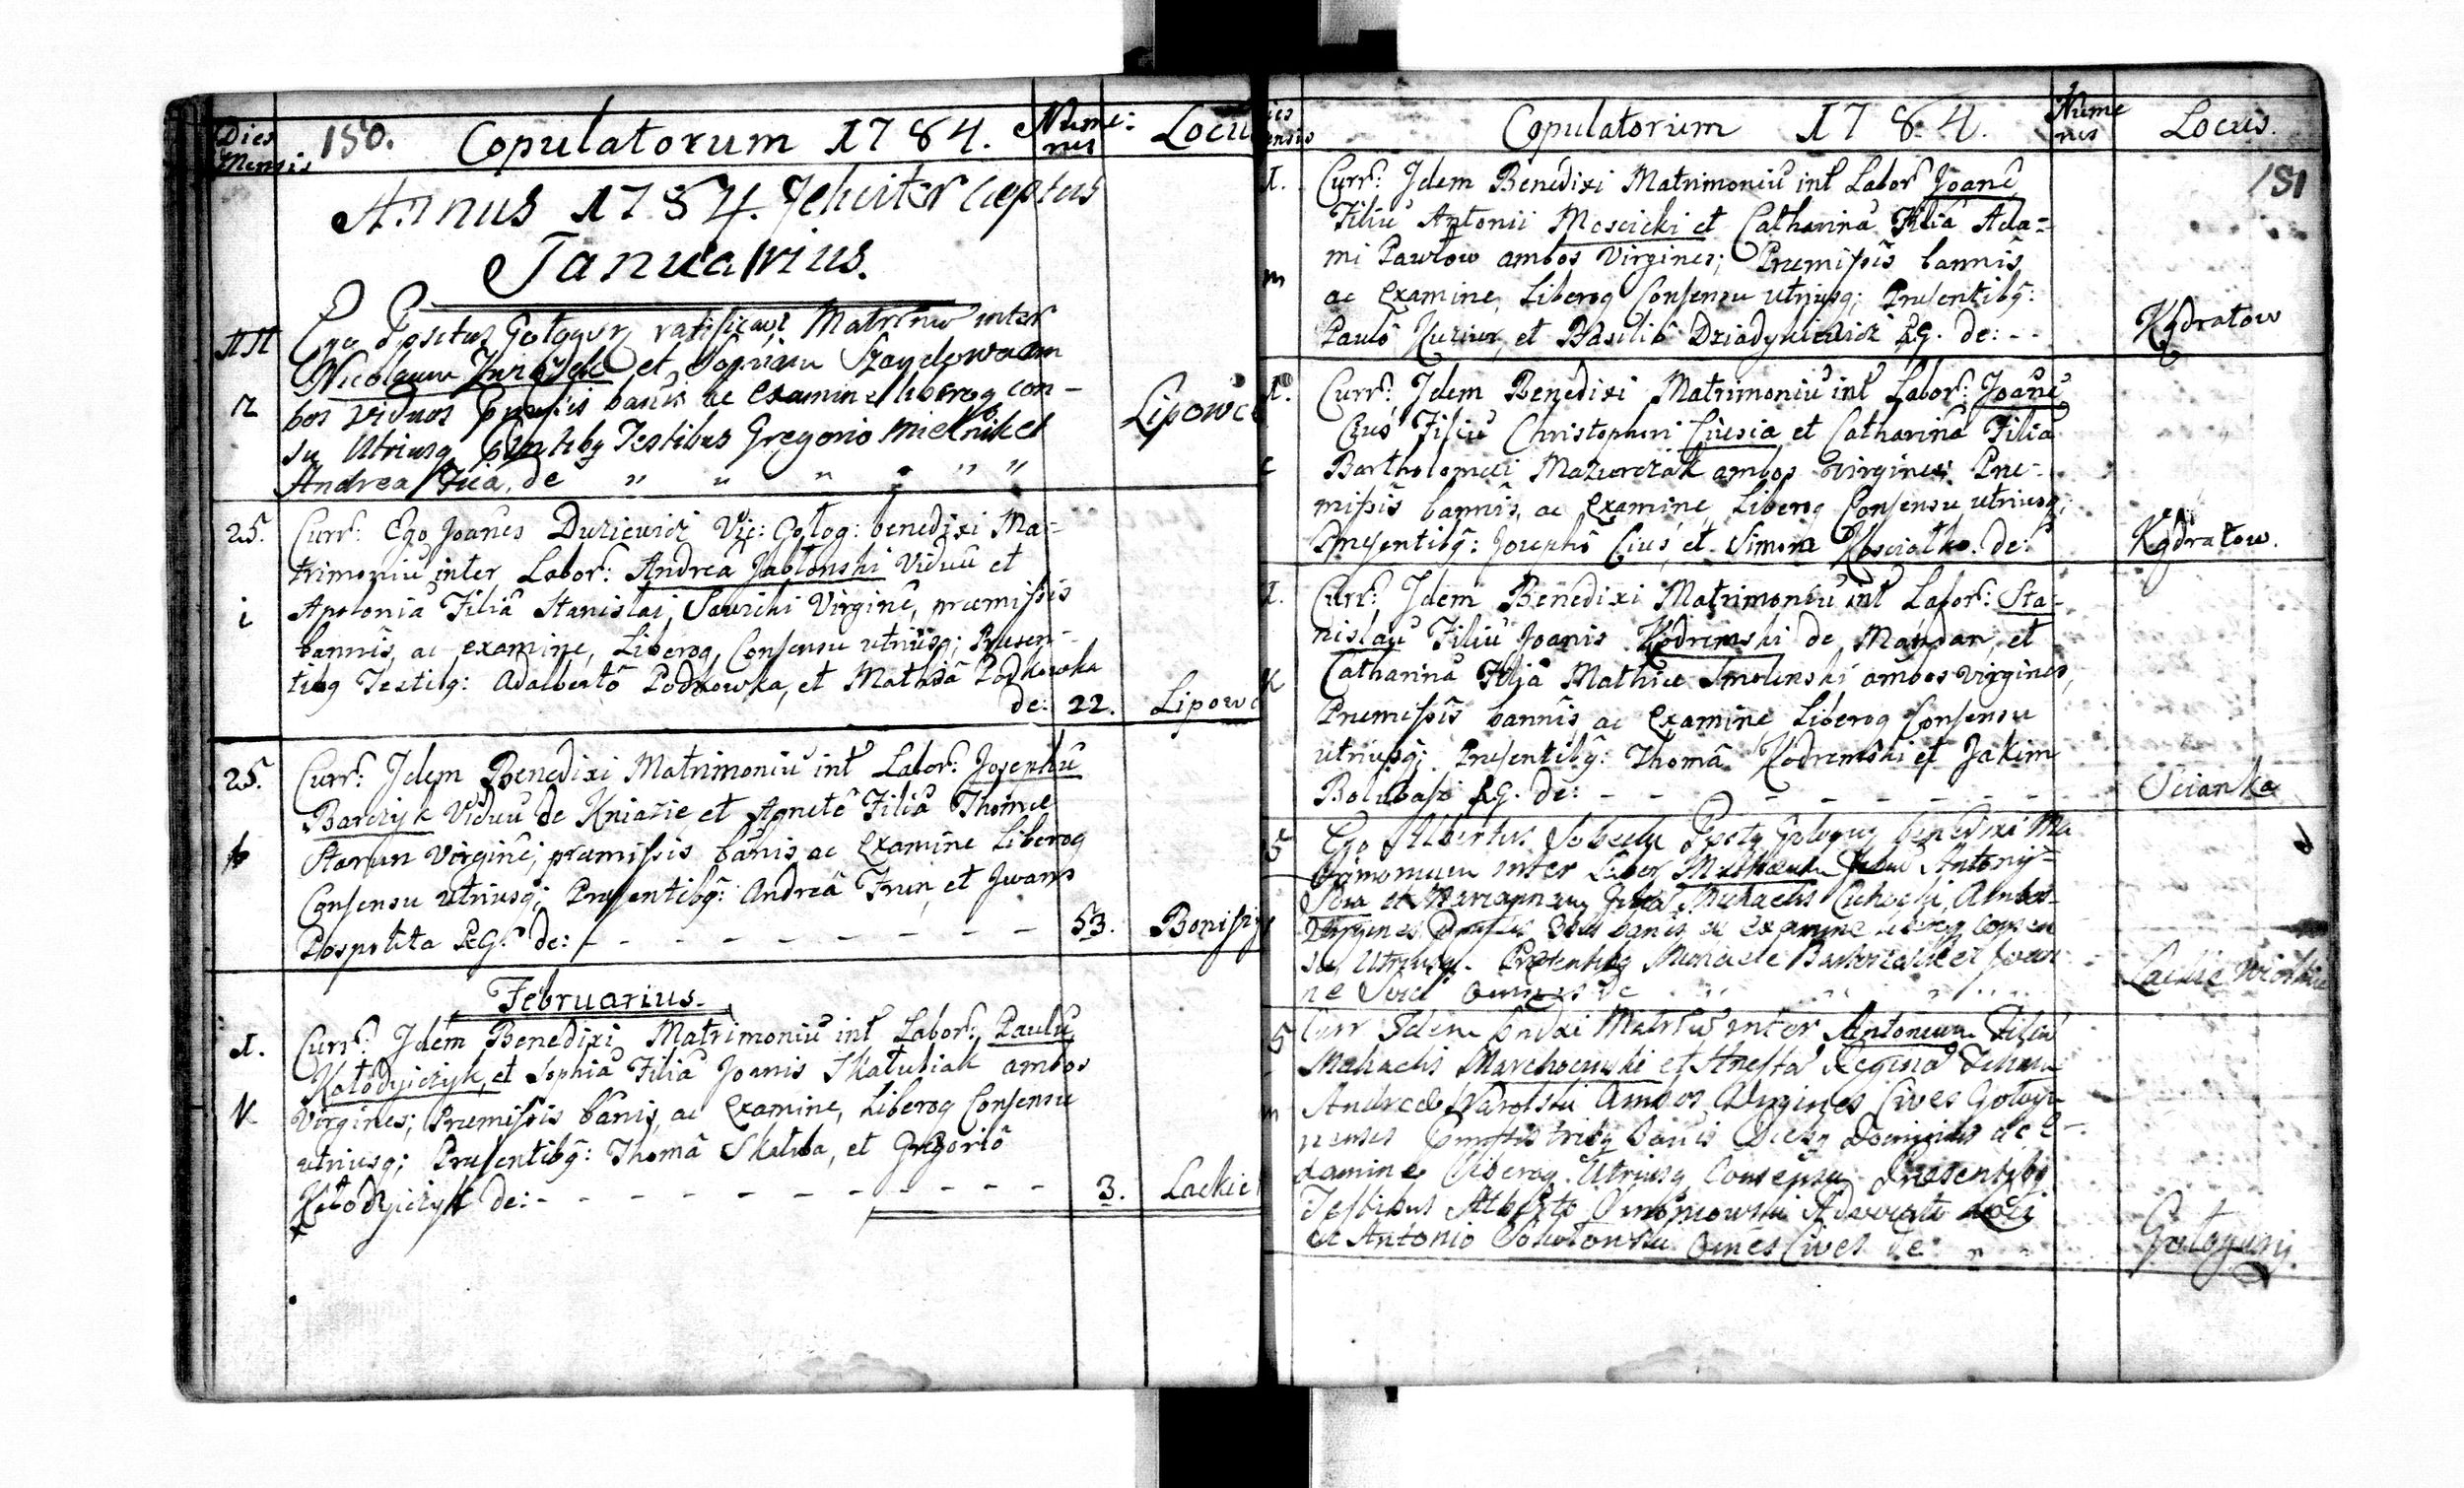 Dies Mensis 150. Copulatorum 1784. Nume: rus Locu
Annus 1784. feliciter caeptus
Januarius.
11 Ego Ppositus Gołogur ratificavi Matriniu inter
Nicolaum et Sophiam Szaydowa am
12 bos viduos pmissis banis ac examine liberoq con-
su Utriusq Testibus Gregorio Mielnik et
Andrea de " " " " " "
Lipowce
25. Curr: Ego Joanes Duziewicz Vic: Gołog: benedixi Ma-
trimoniu inter Labor: Andrea Jabłonski Viduu et
i Apolonia Filia Stanislai Sawicki Virgine, premissis
bannis, ac examine, Liberoq, Consensu utriusq; Presen-
tibq Testibq: Adalberto Podkowka, et Mathia Podkowka
de: 22. Lipowc
25. Curr: Idem Benedixi Matrimoniu int Labor: Josephu
Barczyk Viduu de Kniazie et Agnete Filia Thomae
Starun Virgine; premissis banis ac Examine Liberoq
Consensu utriusq; Presentibq: Andrea Frun, et Jwano
Pospolita RG. de: - - - - - - - - - 53. Bonissy
Februarius.
1. Curr: Idem Benedixi Matrimoniu int Labor: Paulu
Kołodyiczyk, et Sophia Filia Joanis Skałubiak ambos
K Virgines; Premissis banis, ac Examine, Liberoq Consensu
utriusq; Presentibq: Thoma Skałuba, et Gregorio
Kołodyiczyk de: - - - - - - - - - - 3. Lackie
Copulatorium 1784. Nume rus Locus.
181
1. Curr: Idem Benedixi Matrimoniu int Labor Joane
Filiu Antonii Moscicki et Catharina Filia Ada-
m mi Pawłow ambos Virgines; Premissis bannis
ac Examine, Liberoq Consensu utriusq; Presentibq:
Paulo Kuziw, et Basilio Dziadykiewicz RG. de: - - Kądratow
1. Curr: Idem Benedixi Matrimoniu int Labor: Joane
Cius Filiu Christophori Ciusia et Catharina Filia
c Bartholomei Mazurczak ambos virgines; Pre-
missis bannis, ac Examine, Liberoq Consensu utriusq;
Presentibq: Josepho Cius, et Simone Kosciołko. de: Kądratow.
1. Curr: Idem Benedixi Matrimoniu int Labor: Sta-
nislau Filiu Joanis Kodremski de Maydan, et
K Catharina Filia Mathiae Smolenski ambos virgines,
Premissis bannis, ac Examine, Liberoq Consensu
utriusq; Presentibq: Thoma Kodremski et Jakim
Bolubasz RG. de: - - - - - - - - Scianka
5 Ego Albertus Ppositq Gologur benedixi Ma
trimonium inter Labor Antonij
et Mariannam Michaelis Cichocki, Ambos
Virgines banis ac examine liberoq consen
su Utriusq. Presentibq et Joan
ne omnes de " " " " Lackie
5 Curr Idem bndxi Matrim inter Antonium Filiu
Michaelis Marchocinski et Regina Filiam
m Andreae Ambos Virgines Cives Gołogu
renses tribq banis Diebq Dominicis ac e-
xamine Liberoq Utriusq Consensu Presentibq
Testibus Alberto Advocato
et Antonio Sokołowski omnes Cives de " " Gołogury.